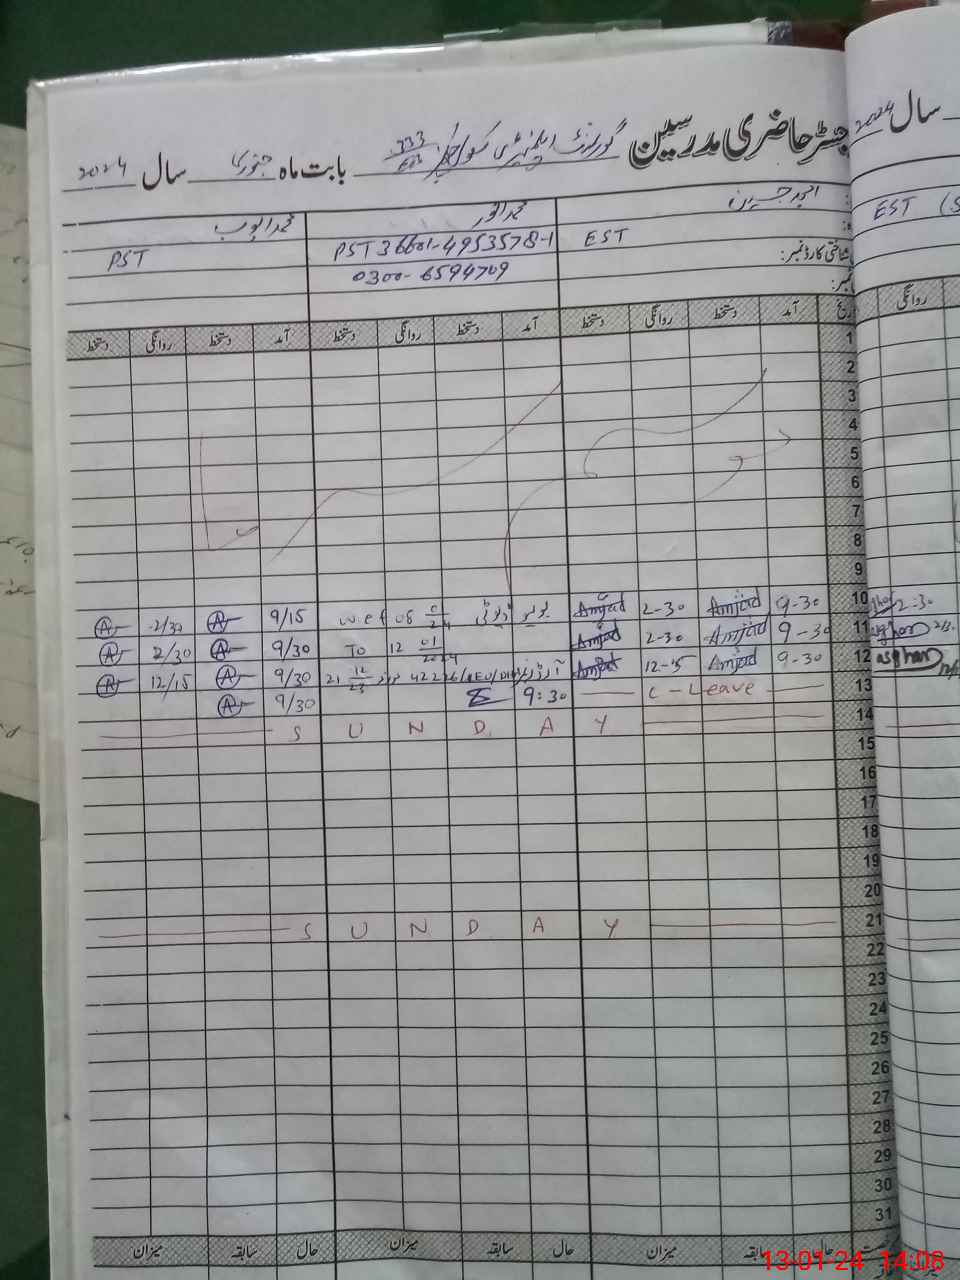 جسٹر حاضری مدرسین گورنمنٹ ایلیمنٹری سکول 333 بابت ماہ جنوری سال 2024
سال 2024
امجد حسین محمد انور محمد ایوب
EST PST 36601-4953578-1 PST
EST
شناختی کارڈ نمبر:
0300-6594709
نمبر:
آمد دستخط روانگی دستخط آمد دستخط روانگی دستخط آمد دستخط روانگی دستخط
روانگی
1
2
3
4
5
6
7
8
9
10 9-30 Amjad 2-30 Amjad پولیو ڈیوٹی w e f 08 9/15 2/30
2-30
11 9-30 Amjad 2-30 Amjad To 12 01 2024 9/30 2/30
12 9-30 Amjad 12-15 Amjad 21 12 23 9/30 12/15
asghar
13 C-Leave 9:30 9/30
14 S U N D A Y
15
16
17
18
19
20
21 S U N D A Y
22
23
24
25
26
27
28
29
30
31
حال سابقہ میزان حال سابقہ میزان حال سابقہ میزان
13-01-24 14:08